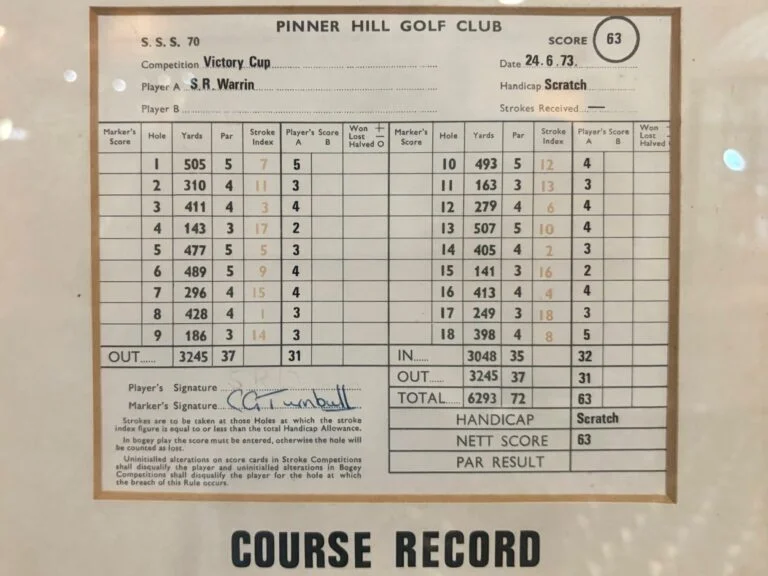 PINNER HILL GOLF CLUB
S. S. S. 70 SCORE 63
Competition Victory Cup Date 24.6.73.
Player A S.R.Warrin Handicap Scratch
Player B Strokes Received —
Marker's Score Hole Yards Par Stroke Index Player's Score A B Won + Lost — Halved O Marker's Score Hole Yards Par Stroke Index Player's Score A B Won Lost Halved
1 505 5 7 5 10 493 5 12 4
2 310 4 11 3 11 163 3 13 3
3 411 4 3 4 12 279 4 6 4
4 143 3 17 2 13 507 5 10 4
5 477 5 5 3 14 405 4 2 3
6 489 5 9 4 15 141 3 16 2
7 296 4 15 4 16 413 4 4 4
8 428 4 1 3 17 249 3 18 3
9 186 3 14 3 18 398 4 8 5
OUT...... 3245 37 31 IN...... 3048 35 32
OUT...... 3245 37 31
TOTAL...... 6293 72 63
Player's Signature
Marker's Signature CGTurnbull
HANDICAP Scratch
NETT SCORE 63
PAR RESULT
Strokes are to be taken at those Holes at which the stroke
index figure is equal to or less than the total Handicap Allowance.
In bogey play the score must be entered, otherwise the hole will
be counted as lost.
Uninitialled alterations on score cards in Stroke Competitions
shall disqualify the player and uninitialled alterations in Bogey
Competitions shall disqualify the player for the hole at which
the breach of this Rule occurs.
COURSE RECORD